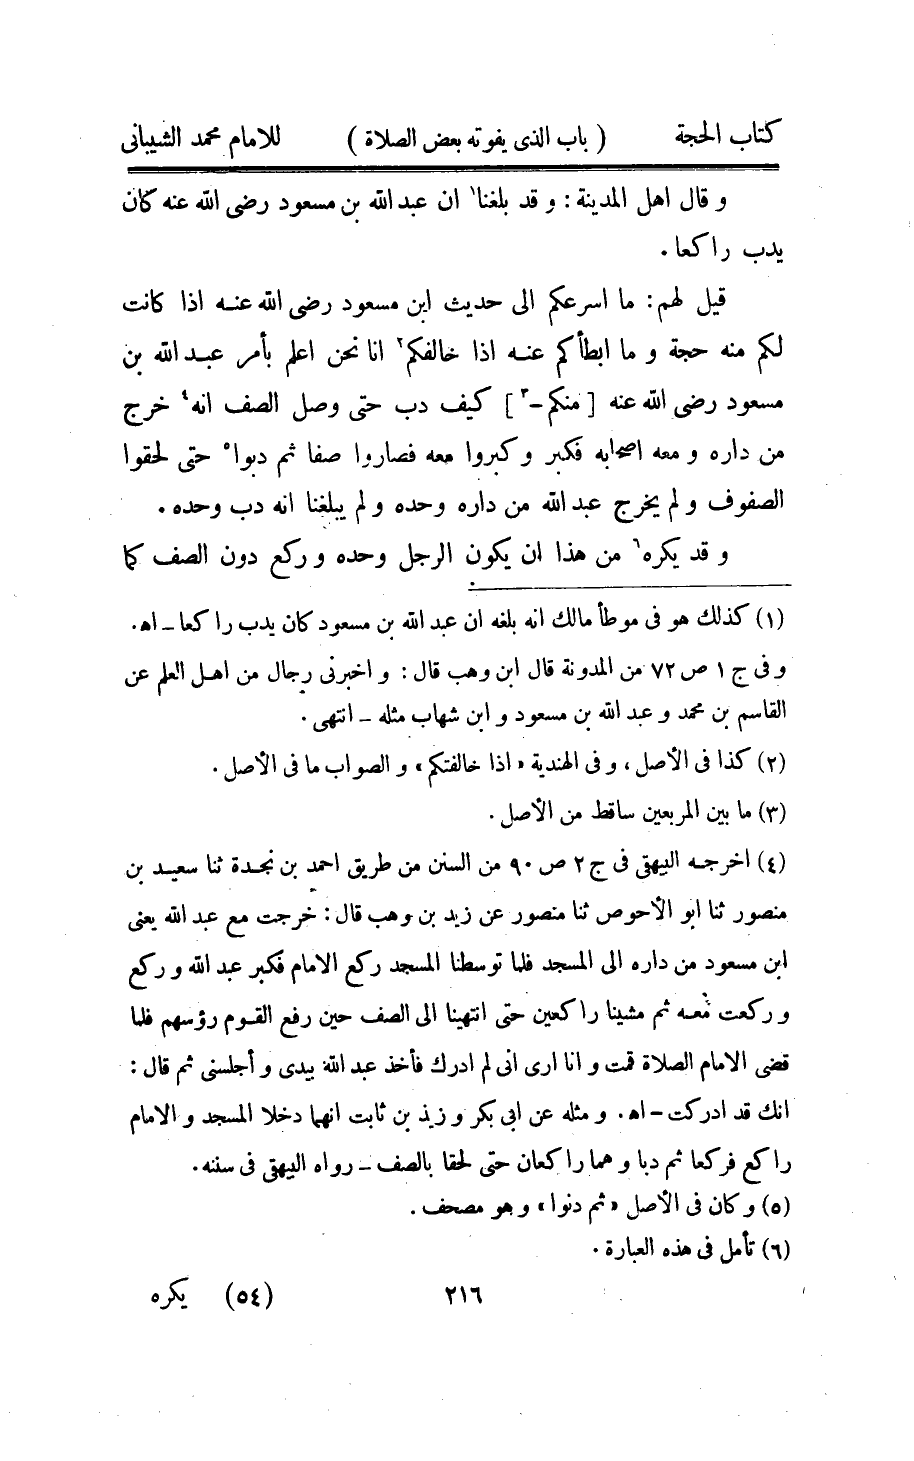 كتاب الحجة ( باب الذى يفوته بعض الصلاة ) للامام محمد الشيبانى
و قال اهل المدينة : و قد بلغنا١ ان عبد الله بن مسعود رضى الله عنه كان
يدب راكعا .
قيل لهم : ما اسرعكم الى حديث ابن مسعود رضى الله عنه اذا كانت
لكم منه حجة و ما ابطأكم عنه اذا خالفكم٢ انا نحن اعلم بأمر عبد الله بن
مسعود رضى الله عنه [ منكم -٣ ] كيف دب حتى وصل الصف انه٤ خرج
من داره و معه اصحابه فكبر و كبروا معه فصاروا صفا ثم دبوا٥ حتى لحقوا
الصفوف و لم يخرج عبد الله من داره وحده و لم يبلغنا انه دب وحده .
و قد يكره٦ من هذا ان يكون الرجل وحده و ركع دون الصف كما
(١) كذلك هو فى موطأ مالك انه بلغه ان عبد الله بن مسعود كان يدب راكعا - اه .
و فى ج ١ ص ٧٢ من المدونة قال ابن وهب قال : و اخبرنى رجال من اهل العلم عن
القاسم بن محمد و عبد الله بن مسعود و ابن شهاب مثله - انتهى .
(٢) كذا فى الأصل ، و فى الهندية « اذا خالفتكم » و الصواب ما فى الأصل .
(٣) ما بين المربعين ساقط من الأصل .
(٤) اخرجه البيهقى فى ج ٢ ص ٩٠ من السنن من طريق احمد بن نجدة ثنا سعيد بن
منصور ثنا ابو الأحوص ثنا منصور عن زيد بن وهب قال : خرجت مع عبد الله يعنى
ابن مسعود من داره الى المسجد فلما توسطنا المسجد ركع الامام فكبر عبد الله و ركع
و ركعت معه ثم مشينا راكعين حتى انتهينا الى الصف حين رفع القوم رؤسهم فلما
قضى الامام الصلاة قمت و انا ارى انى لم ادرك فأخذ عبد الله بيدى و أجلسنى ثم قال :
انك قد ادركت - اه . و مثله عن ابى بكر و زيد بن ثابت انهما دخلا المسجد و الامام
راكع فركعا ثم دبا و هما راكعان حتى لحقا بالصف - رواه البيهقى فى سننه .
(٥) و كان فى الأصل « ثم دنوا » و هو مصحف .
(٦) تأمل فى هذه العبارة .
٢١٦ (٥٤) يكره